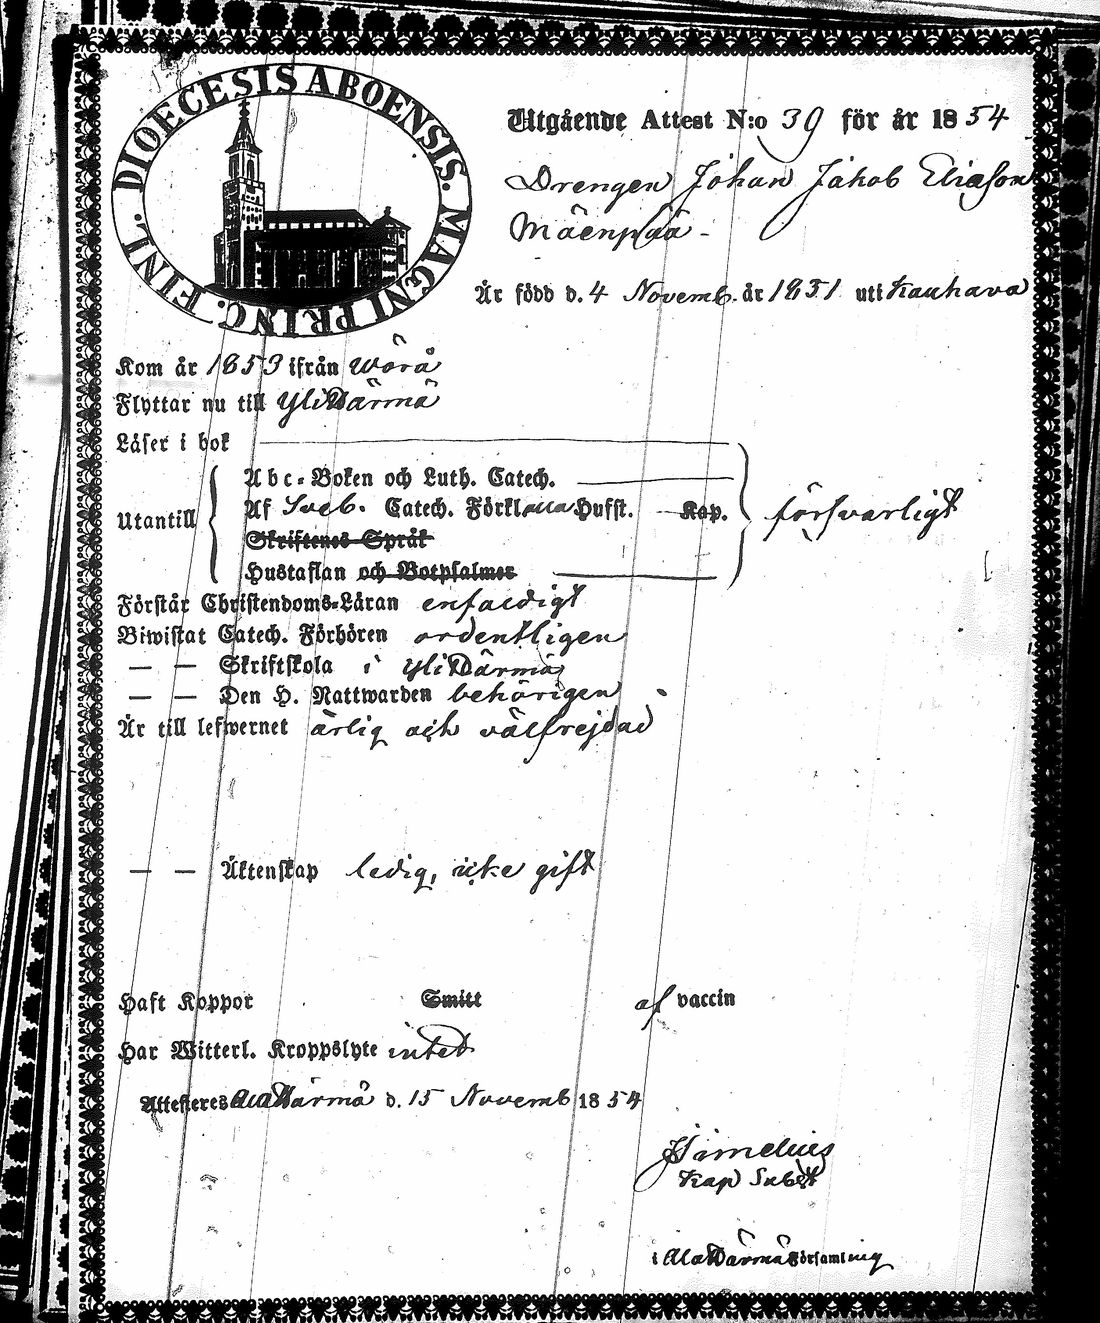 DIOECESIS ABOENSIS. MAGNI PRINC. FINL.
Utgående Attest N:o 39 för år 1854
Drengen Johan Jakob Eliasson
Mäenpää -
Är född d. 4 Novemb. år 1831 uti Kauhava
Kom år 1853 ifrån Wörå
Flyttar nu till YliHärmä
Läser i bok
Abc-Boken och Luth. Catech.
Utantill Af Sveb. Catech. Förklara Hufst. Kap. försvarligt
Skriftenes Språk
Hustaflan och Botpsalmer
Förstår Christendoms-Läran enfaldigt
Biwistat Catech. Förhören ordentligen
— — Skriftskola i YliHärmä
— — Den H. Nattwarden behörigen
Är till lefwernet ärlig och välfrejdad
— — Äktenskap ledig, icke gift
Haft Koppor Smitt af vaccin
Har Witterl. Kroppslyte intet
Attesteras AlaHärmä d. 15 Novemb 1854
Kap Subst
i AlaHärmä Församling